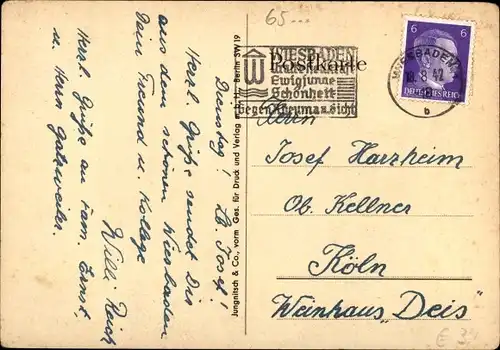 65...
WIESBADEN
Postkarte
Ewigjunge
Schönheit
Gegen Rheuma u. Gicht
6 6
DEUTSCHES REICH
WIESBADEN
18.8.42
b
Herrn
Josef Harzheim
Ob. Kellner
Köln
Weinhaus „Deis"
Jungnitsch & Co., vorm. Ges. für Druck und Verlag Berlin SW 19
Dienstag! Lb. Josef!
Herzl. Grüße sendet Dir
aus dem schönen Wiesbaden
Dein Freund u. Kollege
Willi Reich
Herzl. Grüße an Fam. Ernst
u. Herrn